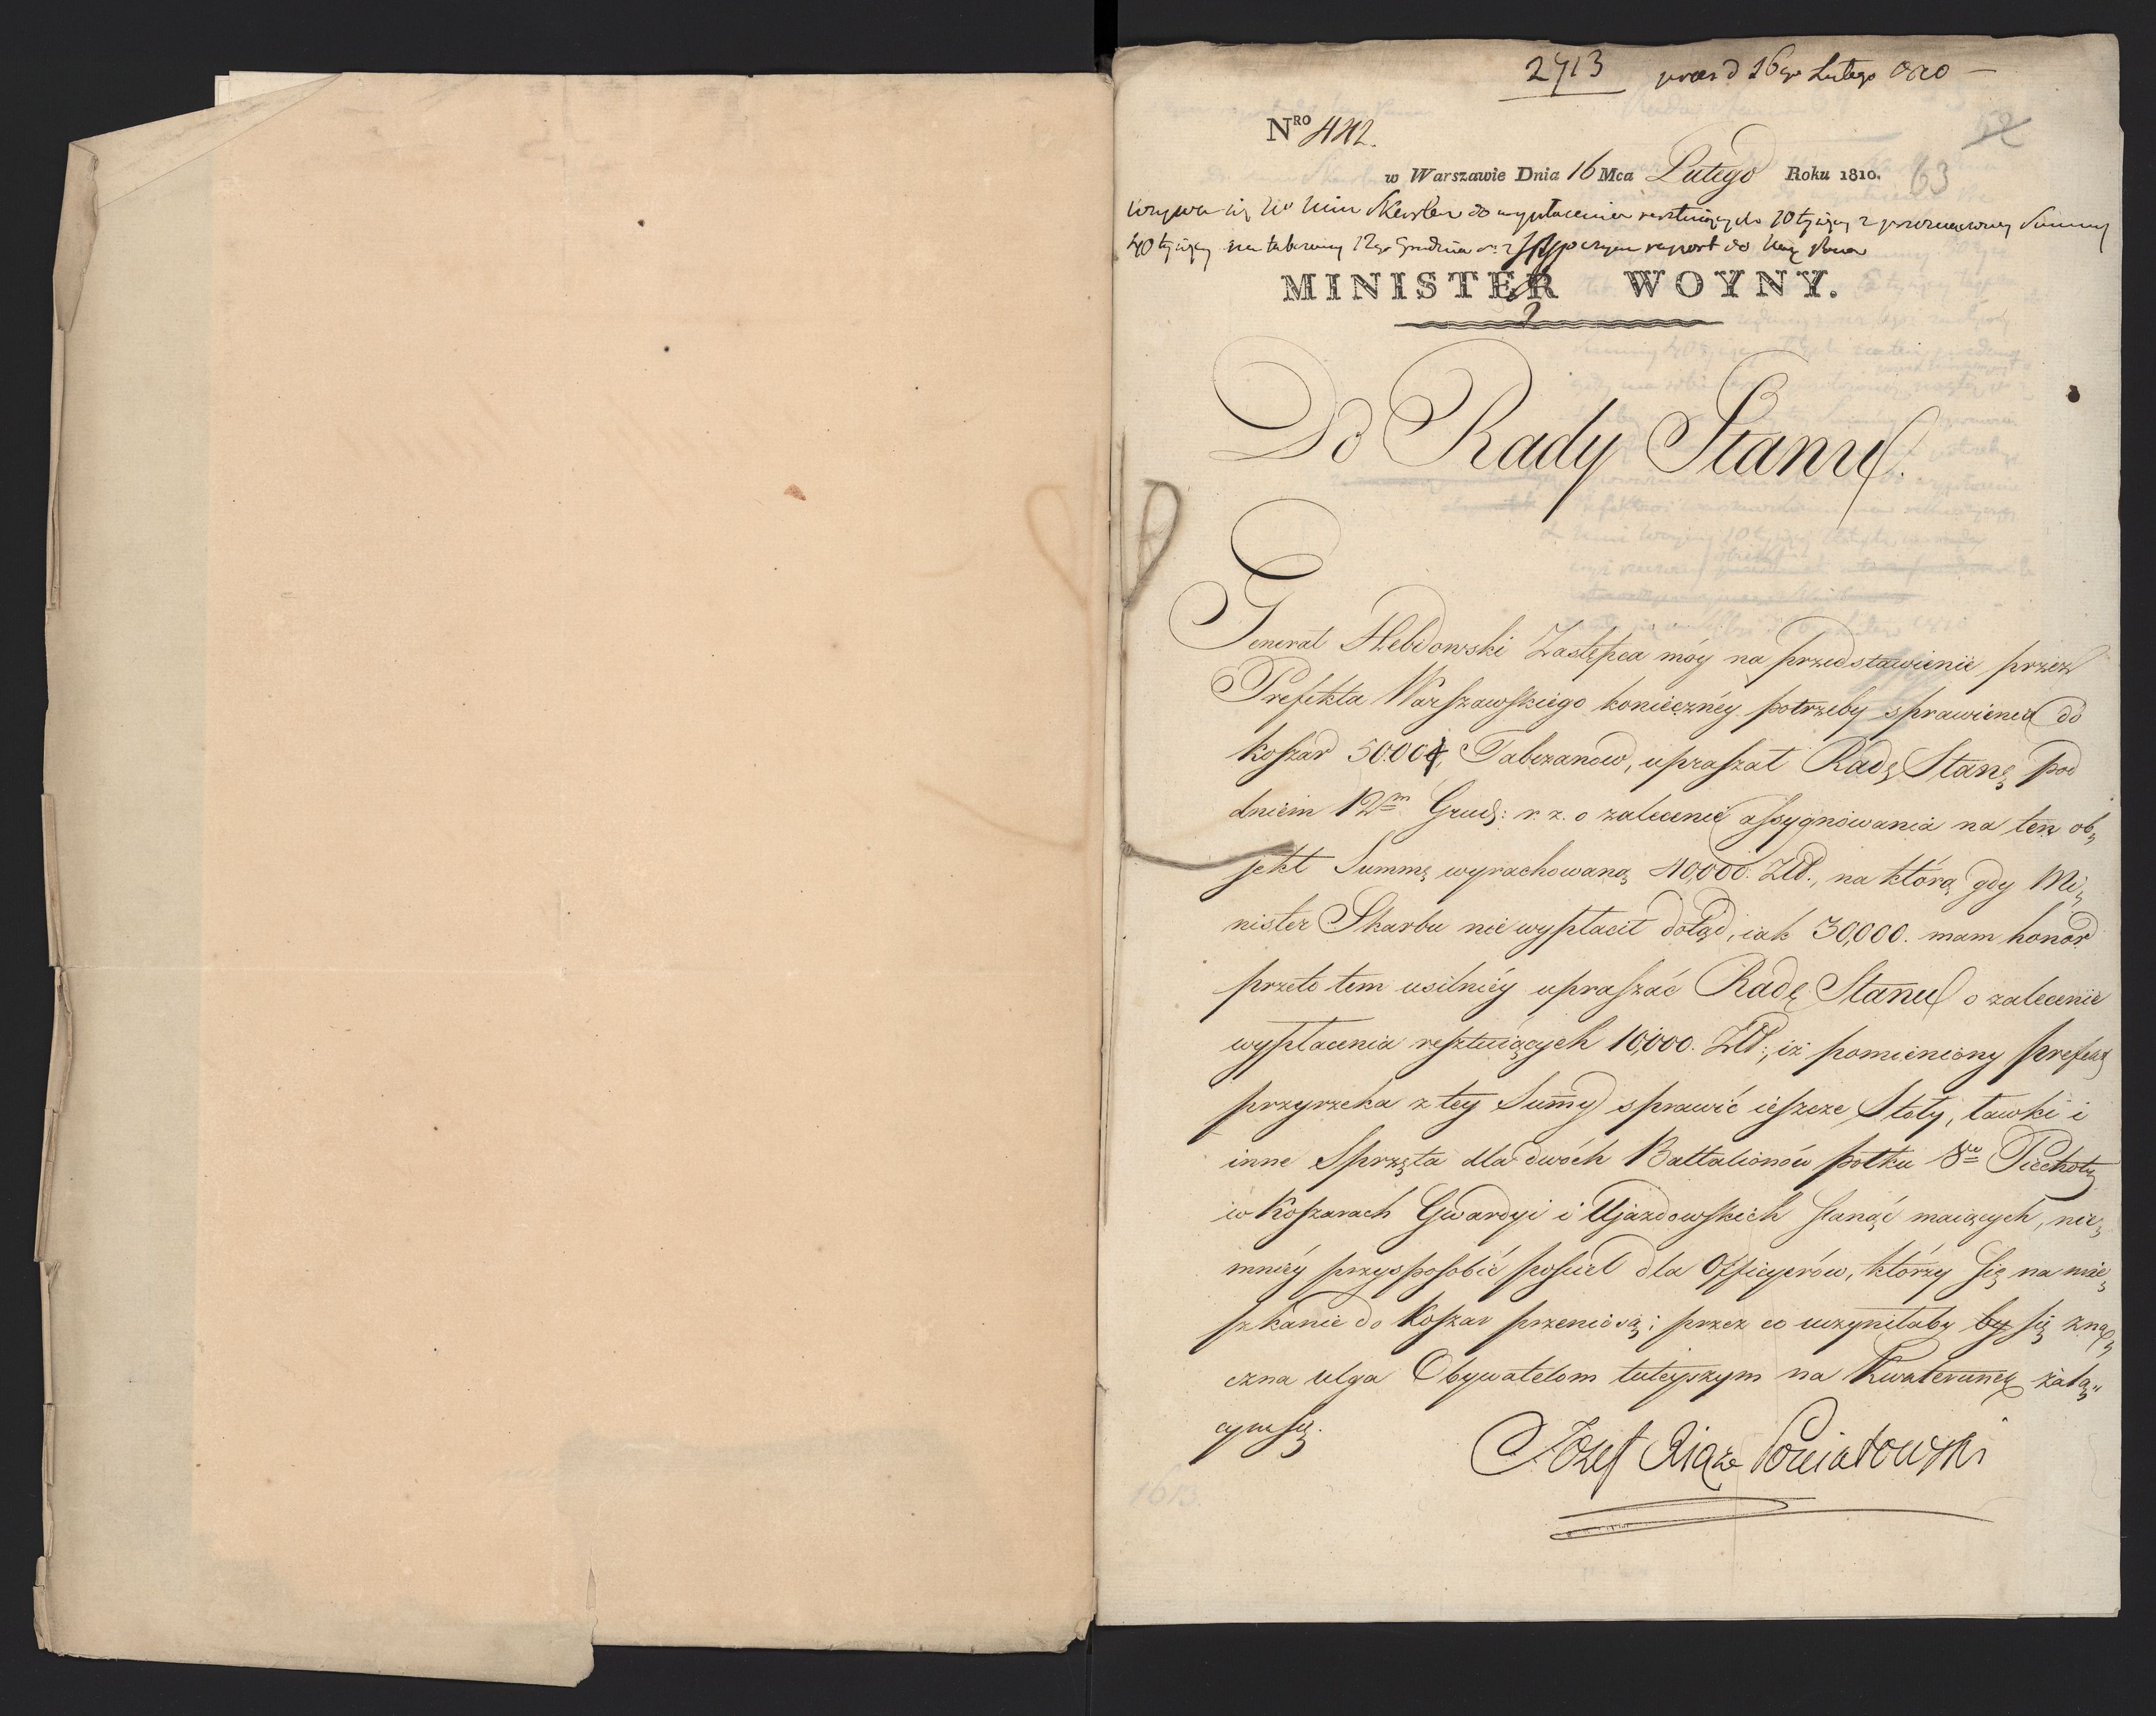 2713 præs d 16go Lutego 810 —
NRO 442.
52
w Warszawie Dnia 16 Mca Lutego Roku 1810.
63
Wzywa się JW Min Skarbu do wypłacenia resztuiących 10 tysięcy z summy
40 tysięcy na taborany 12go Grudnia r: z raport do Xcia Pana
MINISTER WOYNY.
Do Rady Stanu.
Generał Hebdowski Zastępca móy na przedstawienie przez
Prefekta Warszawskiego konieczney potrzeby sprawienia do
koszar 5000 Tabczanów, upraszał Radę Stanu pod
dniem 12m Grud: r. z. o zalecenie assygnowania na ten ob„
jekt Summę wyrachowaną 40,000. Złł., na którą gdy Mi„
nister Skarbu nie wypłacił dotąd, iak 30,000. mam honor
przeto tem usilniéy upraszać Radę Stanu o zalecenie
wypłacenia resztuiących 10,000. Złł:, iż pomieniony prefekt
przyrzeka z tey Summy sprawić ieszcze Stoły, ławki i
inne Sprzęta dla dwóch Battalionów połku 8go Piechoty
w Koszarach Gwardyi i Ujazdowskich stanąć maiących, nie„
mniéy przysposobić pościel dla Officyerów, którzy się na mie„
szkanie do Koszar przeniosą; przez co uczyniłaby by się zna„
czna ulga Obywatelom tuteyszym na Kwaterunek żalą„
cym się.
Józef Xiąże Poniatowski
1613.